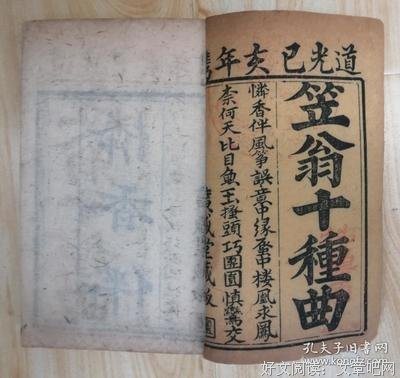 道光己亥年鐫
笠翁十種曲
憐香伴風箏誤意中缘蜃中楼凰求鳳
柰何天比目魚玉搔頭巧團圎慎鸞交
堂藏板
憐香伴
孔夫子旧书网
好文阅读:文章吧网